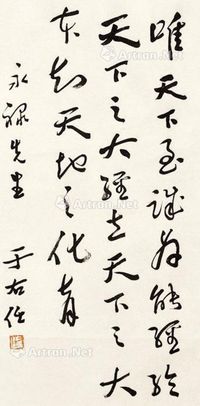 唯天下至誠為能經綸
天下之大經立天下之大
本知天地之化育
永祿先生
于右任
Artron.Net